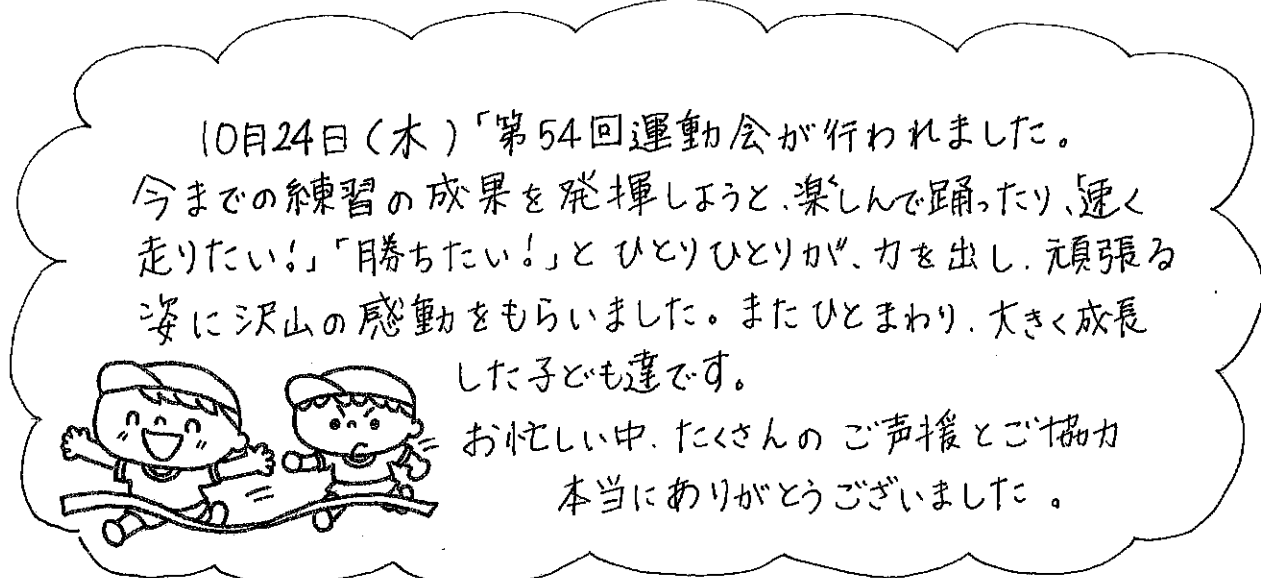 10月24日(木)「第54回運動会が行われました。
今までの練習の成果を発揮しようと、楽しんで踊ったり、「速く
走りたい!」「勝ちたい!」とひとりひとりが、力を出し、頑張る
姿に沢山の感動をもらいました。またひとまわり、大きく成長
した子ども達です。
お忙しい中、たくさんのご声援とご協力
本当にありがとうございました。